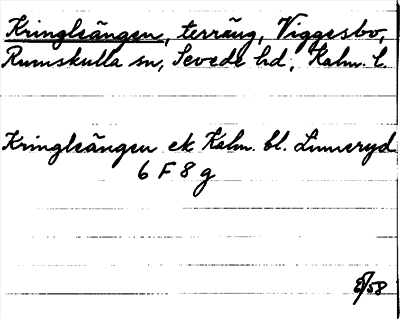 Kringleängen, terräng, Viggesbo,
Rumskulla sn, Sevede hd, Kalm. l.
Kringleängen ek Kalm. bl. Linneryd
6 F 8 g
/58